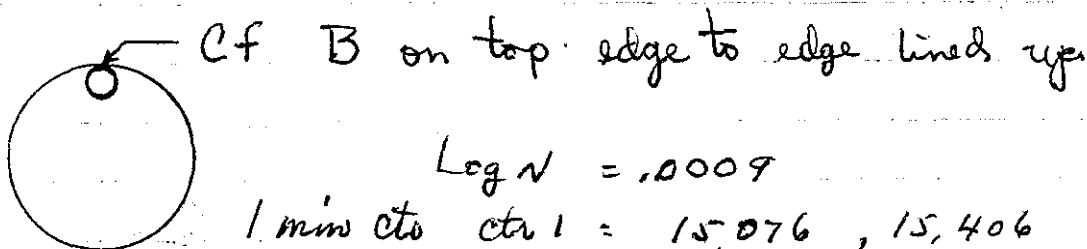 Cf B on top edge to edge lined up
Log N = .0009
1 min cts ctr 1 = 15,076 , 15,406